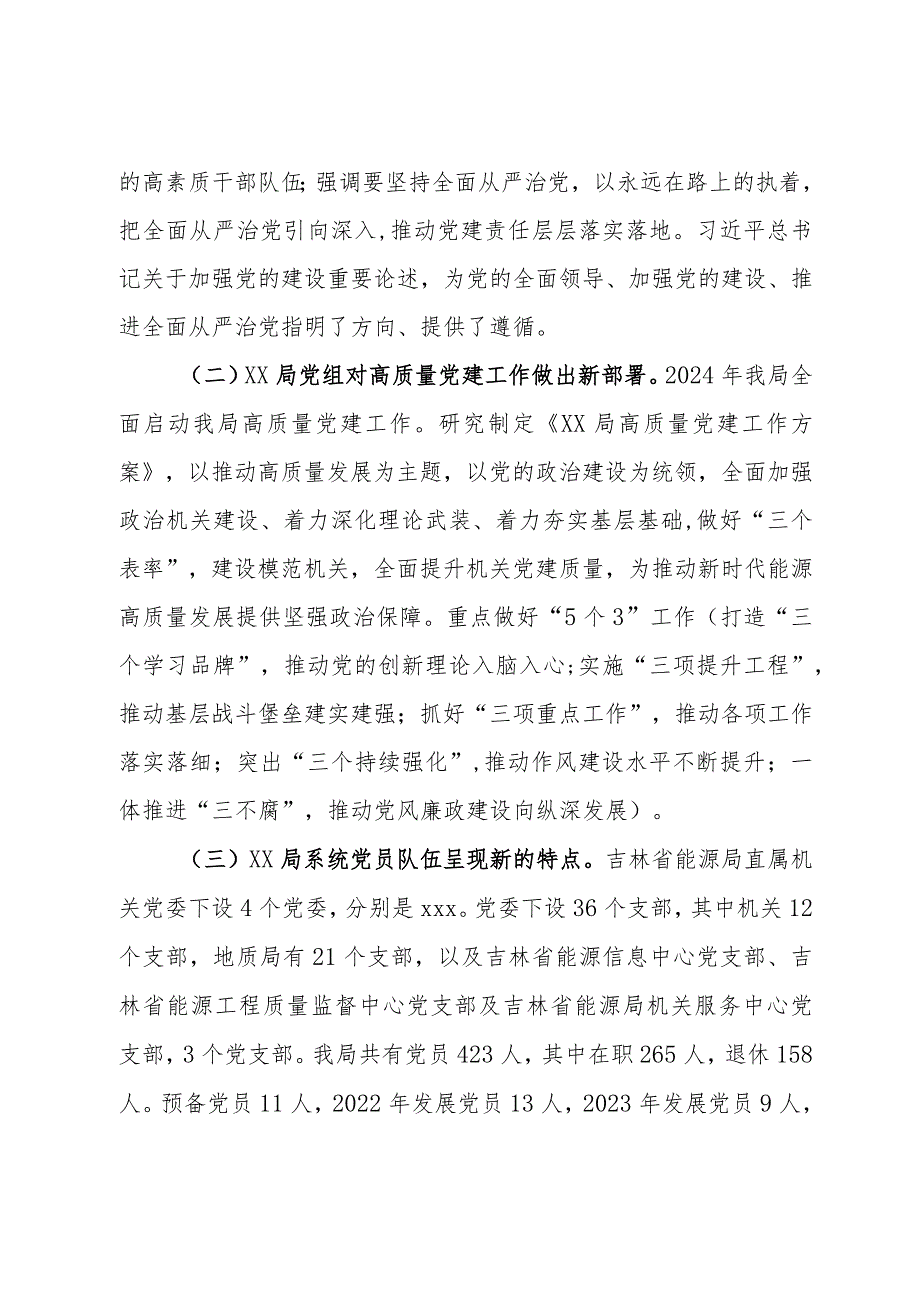 的高素质干部队伍；强调要坚持全面从严治党，以永远在路上的执着，
把全面从严治党引向深入,推动党建责任层层落实落地。习近平总书
记关于加强党的建设重要论述，为党的全面领导、加强党的建设、推
进全面从严治党指明了方向、提供了遵循。
（二）XX局党组对高质量党建工作做出新部署。2024年我局全
面启动我局高质量党建工作。研究制定《XX局高质量党建工作方
案》，以推动高质量发展为主题，以党的政治建设为统领，全面加强
政治机关建设、着力深化理论武装、着力夯实基层基础,做好“三个
表率”，建设模范机关，全面提升机关党建质量，为推动新时代能源
高质量发展提供坚强政治保障。重点做好“5个3”工作（打造“三
个学习品牌”，推动党的创新理论入脑入心;实施“三项提升工程”，
推动基层战斗堡垒建实建强；抓好“三项重点工作”，推动各项工作
落实落细；突出“三个持续强化”,推动作风建设水平不断提升；一
体推进“三不腐”，推动党风廉政建设向纵深发展）。
（三）XX局系统党员队伍呈现新的特点。吉林省能源局直属机
关党委下设4个党委，分别是xxx。党委下设36个支部，其中机关12
个支部，地质局有21个支部，以及吉林省能源信息中心党支部、吉
林省能源工程质量监督中心党支部及吉林省能源局机关服务中心党
支部，3个党支部。我局共有党员423人，其中在职265人，退休158
人。预备党员11人，2022年发展党员13人，2023年发展党员9人，